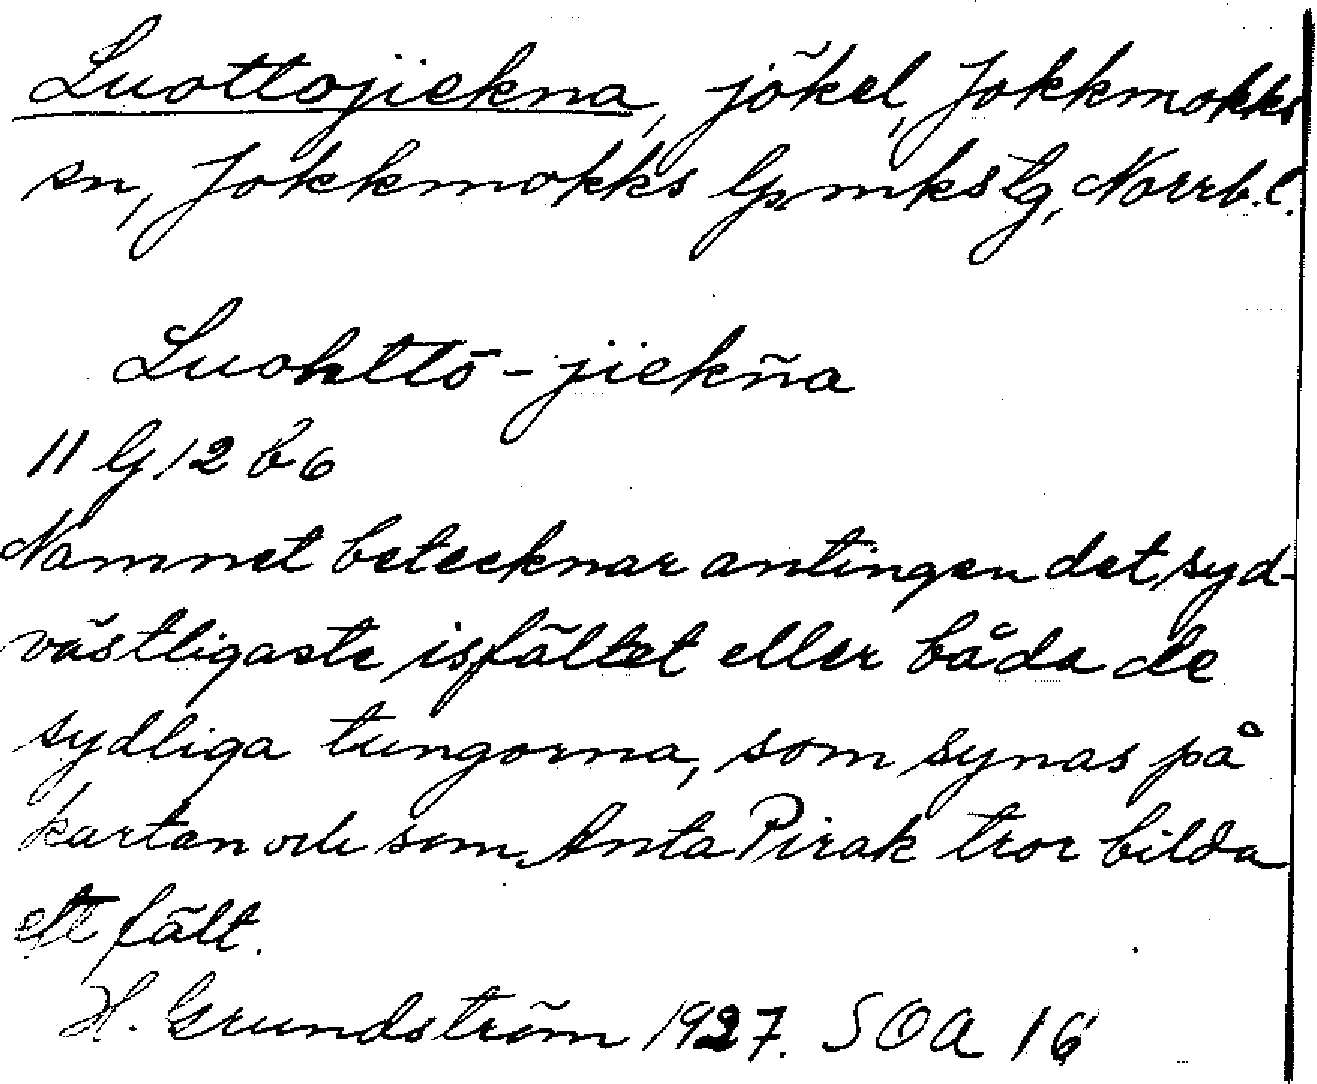 Luottojiekna, jökel, Jokkmokks
sn, Jokkmokks lpmkstg, Norrb.l.
Luohttō-jiekn̄a
11 G 12 b 6
Namnet betecknar antingen det syd-
västligaste isfältet eller båda de
sydliga tungorna, som synas på
kartan och som Anta Pirak tror bilda
ett fält.
H. Grundström 1927. SOA 16